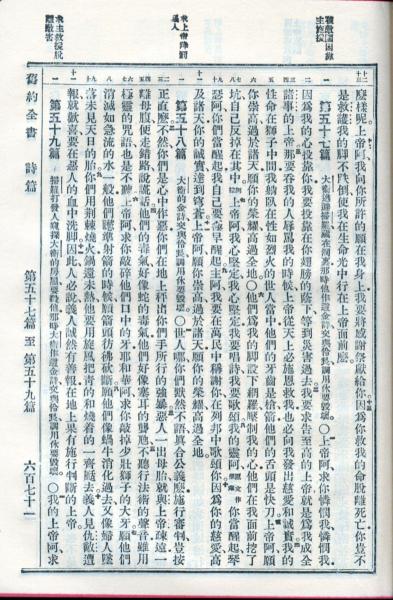 求上帝降罰惡人
求主救援脫離敵害
麼樣呢上帝阿我向你所許的願在我身上我要將感謝祭獻給你因為你救我的命脫離死亡你豈不
是救護我的腳不跌倒使我在生命光中行在上帝面前麼
第五十七篇
○上帝阿求你憐憫我憐憫我
因為我的心投靠你我要投靠在你翅膀的蔭下等到災害過去我要求告至高的上帝就是為我成全
諸事的上帝那要吞我的人辱罵我的時候上帝從天上必施恩救我也必向我發出慈愛和誠實我的
性命在獅子中間我躺臥在性如烈火的世人當中他們的牙齒是槍箭他們的舌頭是快刀上帝阿願
你崇高過於諸天願你的榮耀高過全地○他們為我的腳設下網羅壓制我的心他們在我面前挖了
坑自己反掉在其中上帝阿我心堅定我心堅定我要唱詩我要歌頌我的靈阿你當醒起琴
瑟阿你們當醒起我自己要儘早醒起主阿我要在萬民中稱謝你在列邦中歌頌你因為你的慈愛高
及諸天你的誠實達到穹蒼上帝阿願你崇高過於諸天願你的榮耀高過全地
第五十八篇 大衛的金詩交與伶長調用休要毀壞
○世人哪你們默然不語真合公義麼施行審判豈按
正直麼不然你們是心中作惡你們在地上秤出你們手所行的強暴惡人一出母胎就與上帝疏遠一
離母腹便走錯路說謊話他們的毒氣好像蛇的毒氣他們好像塞耳的聾虺不聽行法術的聲音雖用
極靈的咒語也是不聽上帝阿求你敲碎他們口中的牙耶和華阿求你敲掉少壯獅子的大牙願他們
消滅如急流的水一般他們瞅準射箭的時候願箭頭彷彿砍斷願他們像蝸牛消化過去又像婦人墜
落未見天日的胎你們用荊棘燒火鍋還未熱他要用旋風把青的和燒着的一齊颳去義人見仇敵遭
報就歡喜要在惡人的血中洗腳因此人必說義人誠然有善報在地上果有施行判斷的上帝
第五十九篇
○我的上帝阿求
舊約全書
詩篇
第五十七篇 至 第五十九篇
六百七十一